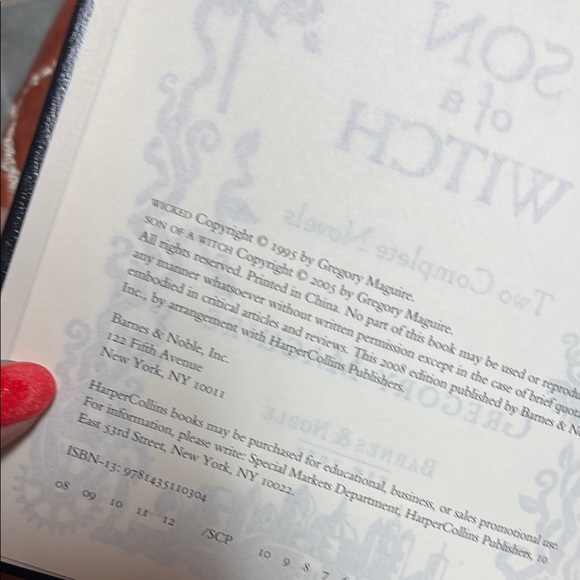 SON
of a
WITCH
Two Complete Novels
WICKED Copyright © 1995 by Gregory Maguire.
SON OF A WITCH Copyright © 2005 by Gregory Maguire.
All rights reserved. Printed in China. No part of this book may be used or reprodu
any manner whatsoever without written permission except in the case of brief quot
embodied in critical articles and reviews. This 2008 edition published by Barnes & No
Inc., by arrangement with HarperCollins Publishers.
GREGORY
Barnes & Noble, Inc.
122 Fifth Avenue
New York, NY 10011
BARNES & NOBLE
HarperCollins books may be purchased for educational, business, or sales promotional use.
For information, please write: Special Markets Department, HarperCollins Publishers, 10
East 53rd Street, New York, NY 10022.
ISBN-13: 9781435110304
08 09 10 11 12 /SCP 10 9 8 7 6